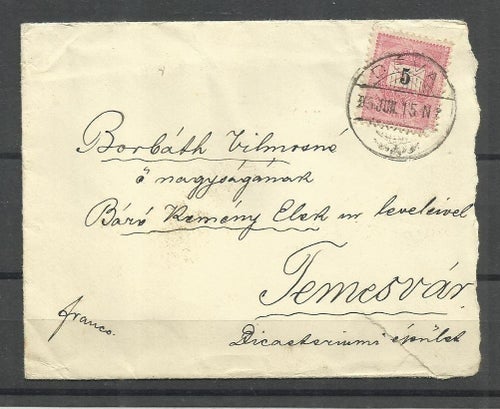 5
JUN. 15
Borbáth Vilmosné
ő nagyságának
Báró Kemény Elek úr leveleivel
Temesvár
franco.
Dicasteriumi épület